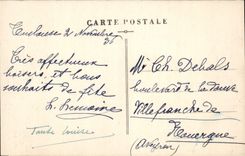 CARTE POSTALE
Toulouse 2 Novembre
Très affectueux
baisers et bons
souhaits de fête
L. Lemoine
Tante Louise
Mr Ch. Debals
boulevard de la
Villefranche de
Rouergue
Aveyron